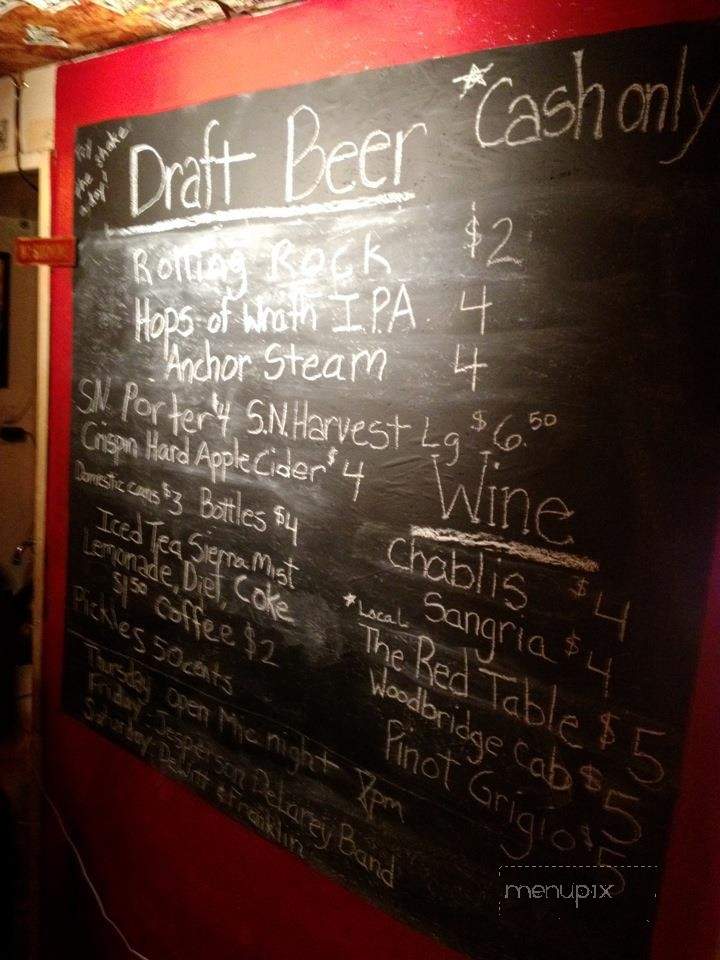 *Cash only
the shake
Draft Beer
Rolling Rock $2
Hops of Wrath I.P.A. 4
Anchor Steam 4
S.N. Porter $4 S.N. Harvest Lg $6.50
Crispin Hard Apple Cider $4
Domestic cans $3 Bottles $4
Iced Tea Sierra Mist
Lemonade, Diet, Coke
$1.50 Coffee $2
Pickles 50cents
Wine
Chablis $4
Sangria $4
*Local
The Red Table $5
Woodbridge Cab $5
Pinot Grigio $5
Thursday Open Mic night 8pm
Friday: Jesperson DeLarey Band
Saturday: Dewitt & Franklin
menupix